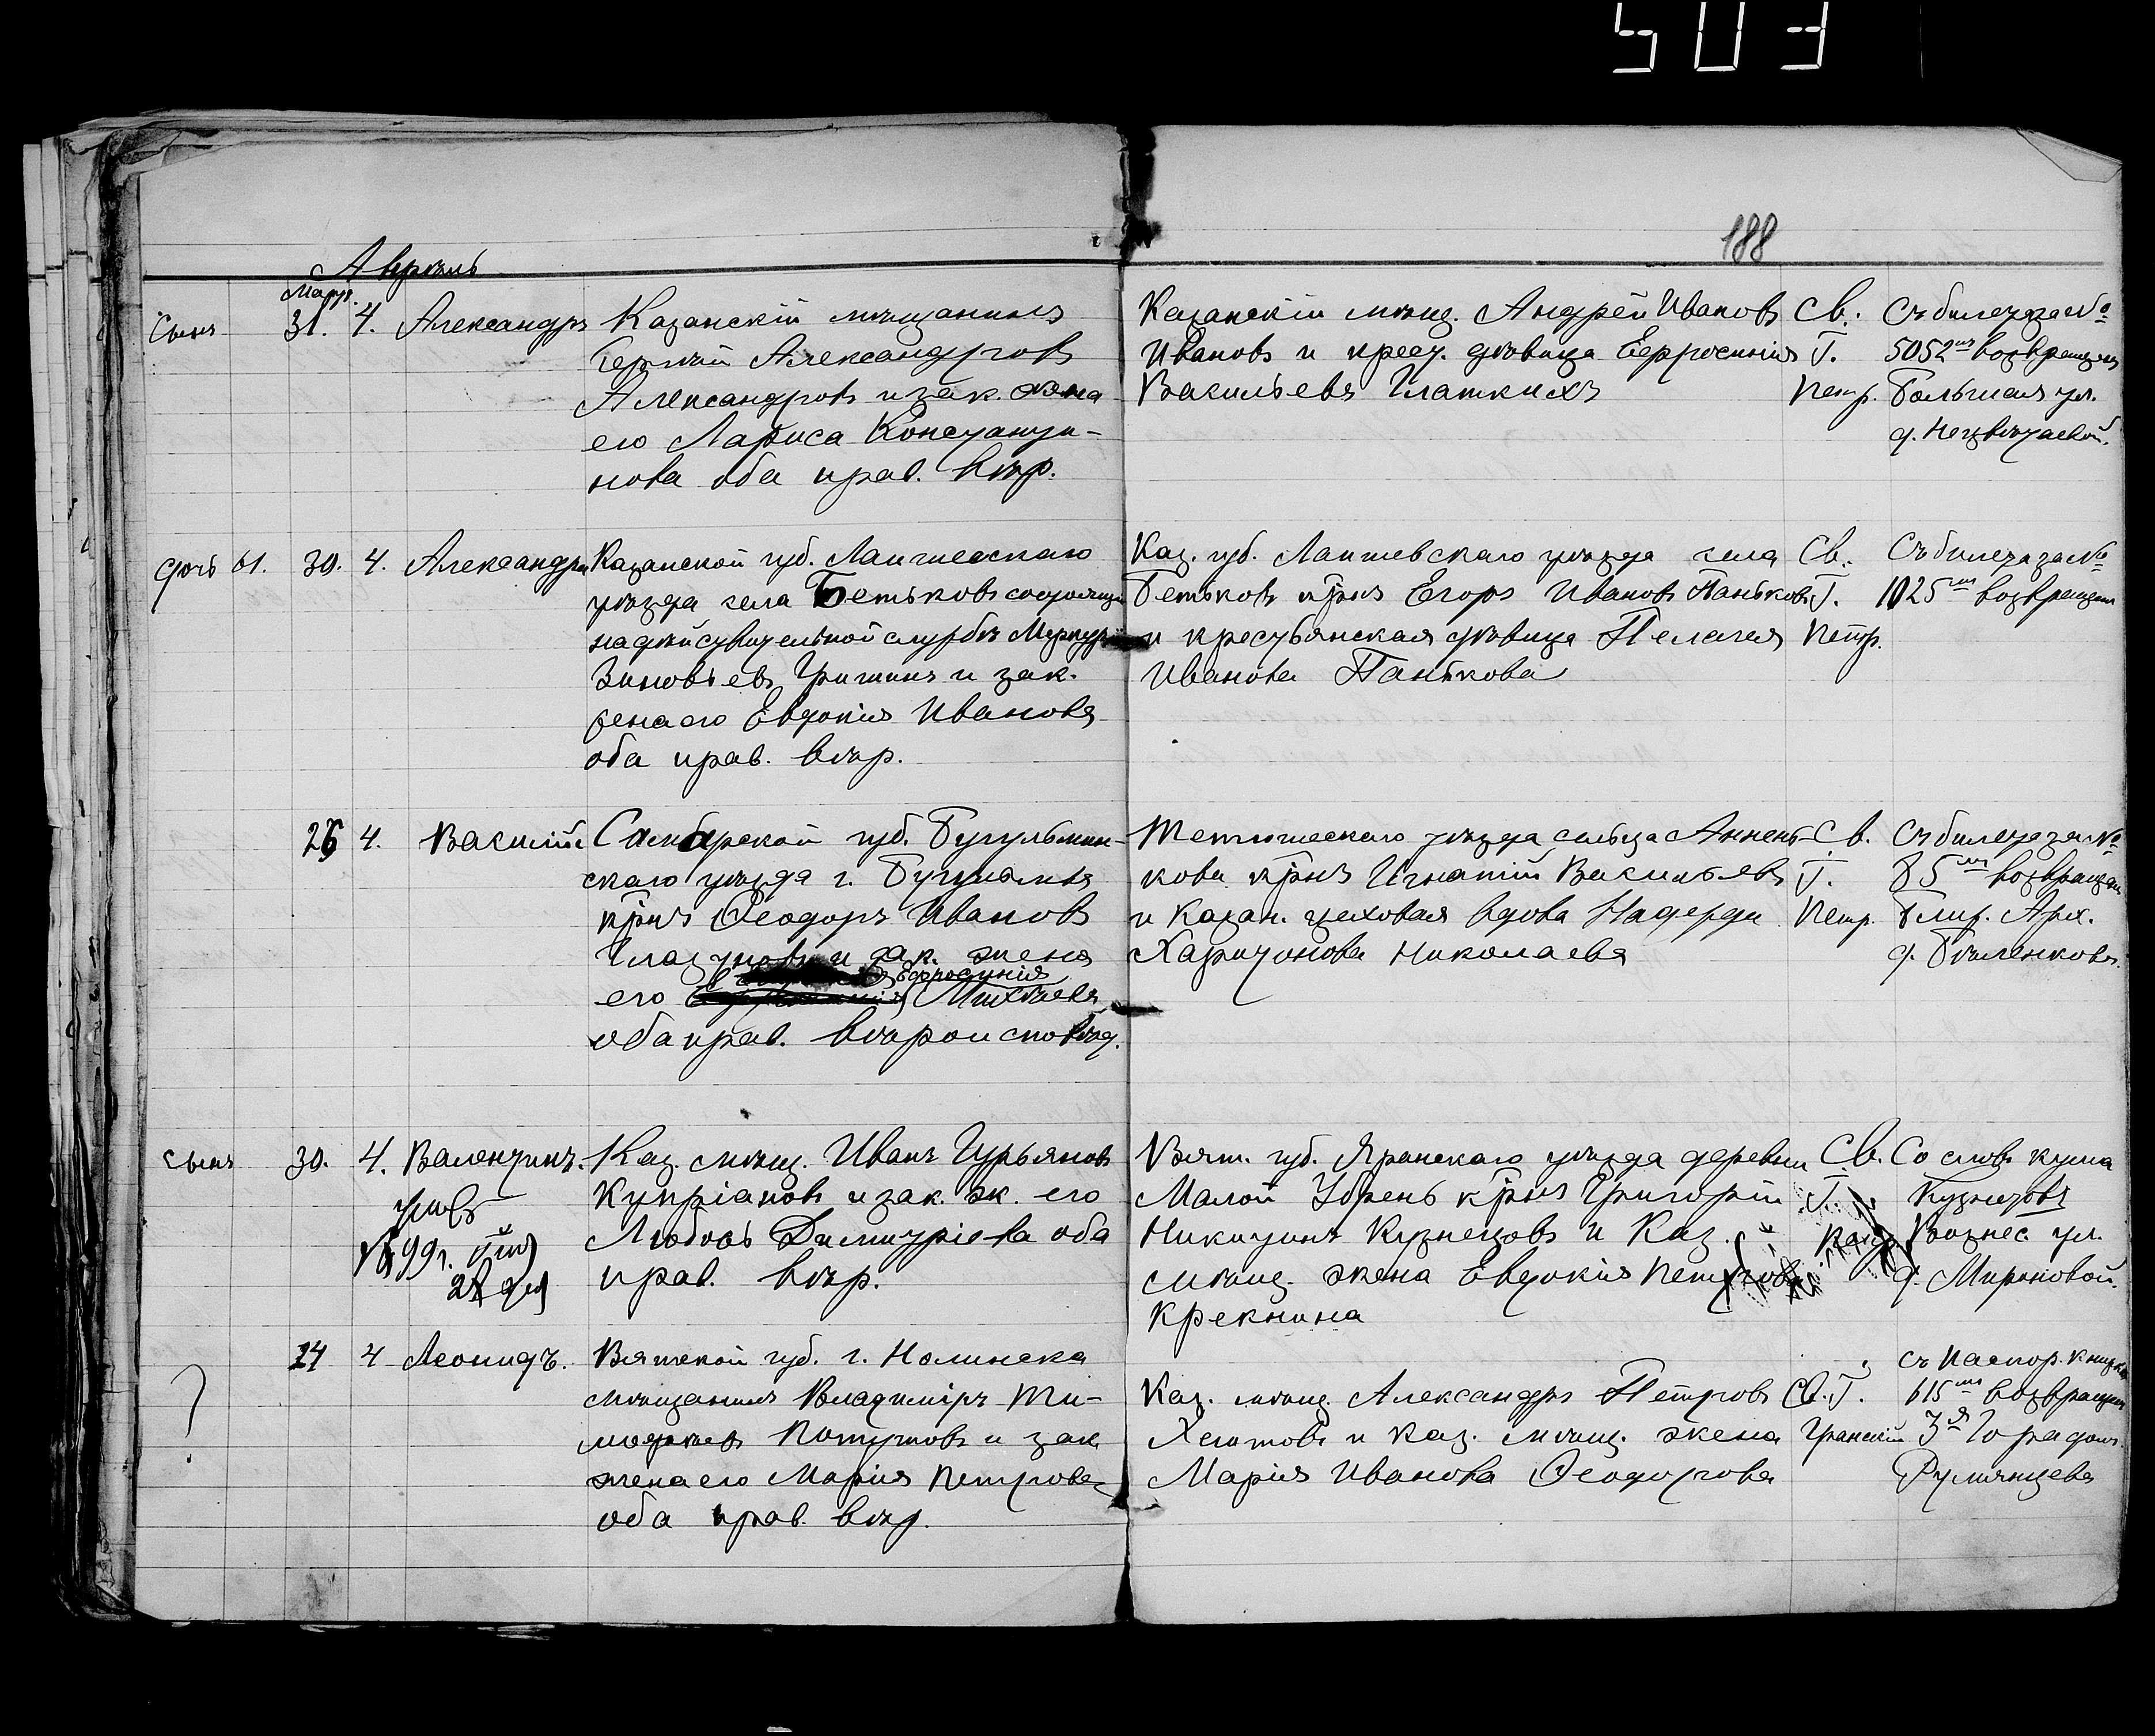 503
188
Апрѣль
Март.
сынъ 31. 4. Александръ
Казанскій мѣщанинъ
Сергѣй Александровъ
Александровъ и зак. жена
его Лариса Константи-
нова оба прав. вѣр.
Казанскій мѣщ. Андрей Ивановъ
Ивановъ и крест. дѣвица Евфросинія
Васильева
Св.
Т.
Петр.
Съ билета за №
5052мъ возвращенъ
Большая ул.
д.
дочь 61. 30. 4. Александра
Казанской губ. Лаишевскаго
уѣзда села Бетьковъ состоящій
на дѣйствительной службѣ Меркур
Зиновьевъ Гришинъ и зак.
жена его Евдокія Иванова
оба прав. вѣр.
Каз. губ. Лаишевскаго уѣзда села
Бетьковъ крнъ Егоръ Ивановъ Паньковъ
и крестьянская дѣвица Пелагея
Иванова Панькова
Св.
Т.
Петр.
Съ билета за №
1025мъ возвращенъ
26 4. Василій
Самарской губ. Бугульмин-
скаго уѣзда г. Бугульмы
крнъ Ѳеодоръ Ивановъ
Глазуновъ и зак. жена
Евфросинія
его Михѣева
оба прав. вѣроисповѣд.
Тетюшскаго уѣзда сельца Аннень-
кова крнъ Игнатій Васильевъ
и Казан. цеховая вдова Надежда
Харитонова Николаева
Св.
Т.
Петр.
Съ билета за №
85мъ возвращенъ
Ближ. Арх.
д. Бѣленкова.
сынъ 30. 4. Валентинъ.
умеръ
1899г. Іюля
27 дня
Каз. мѣщ. Иванъ Гурьяновъ
Купріановъ и зак. ж. его
Любовь Димитріева оба
прав. вѣр.
Вят. губ. Яранскаго уѣзда деревни
Малой Убрень крнъ Григорій
Никитинъ Кузнецовъ и Каз.
мѣщ. жена Евдокія Петрова
Крекнина
Св.
Т.
Со словъ кума
Кузнецова
Вознес. ул.
д. Мироновой.
?
24 4 Леонидъ.
Вятской губ. г. Нолинска
мѣщанинъ Владиміръ Ти-
моѳеевъ и зак
жена его Марія Петрова
оба прав. вѣр.
Каз. мѣщ. Александръ Петровъ
и Каз. мѣщ. жена
Марія Иванова Ѳеодорова
Св. Т.
Гранскій
съ паспор. книжки
615мъ возвращенъ
3я Гора домъ
Румянцева